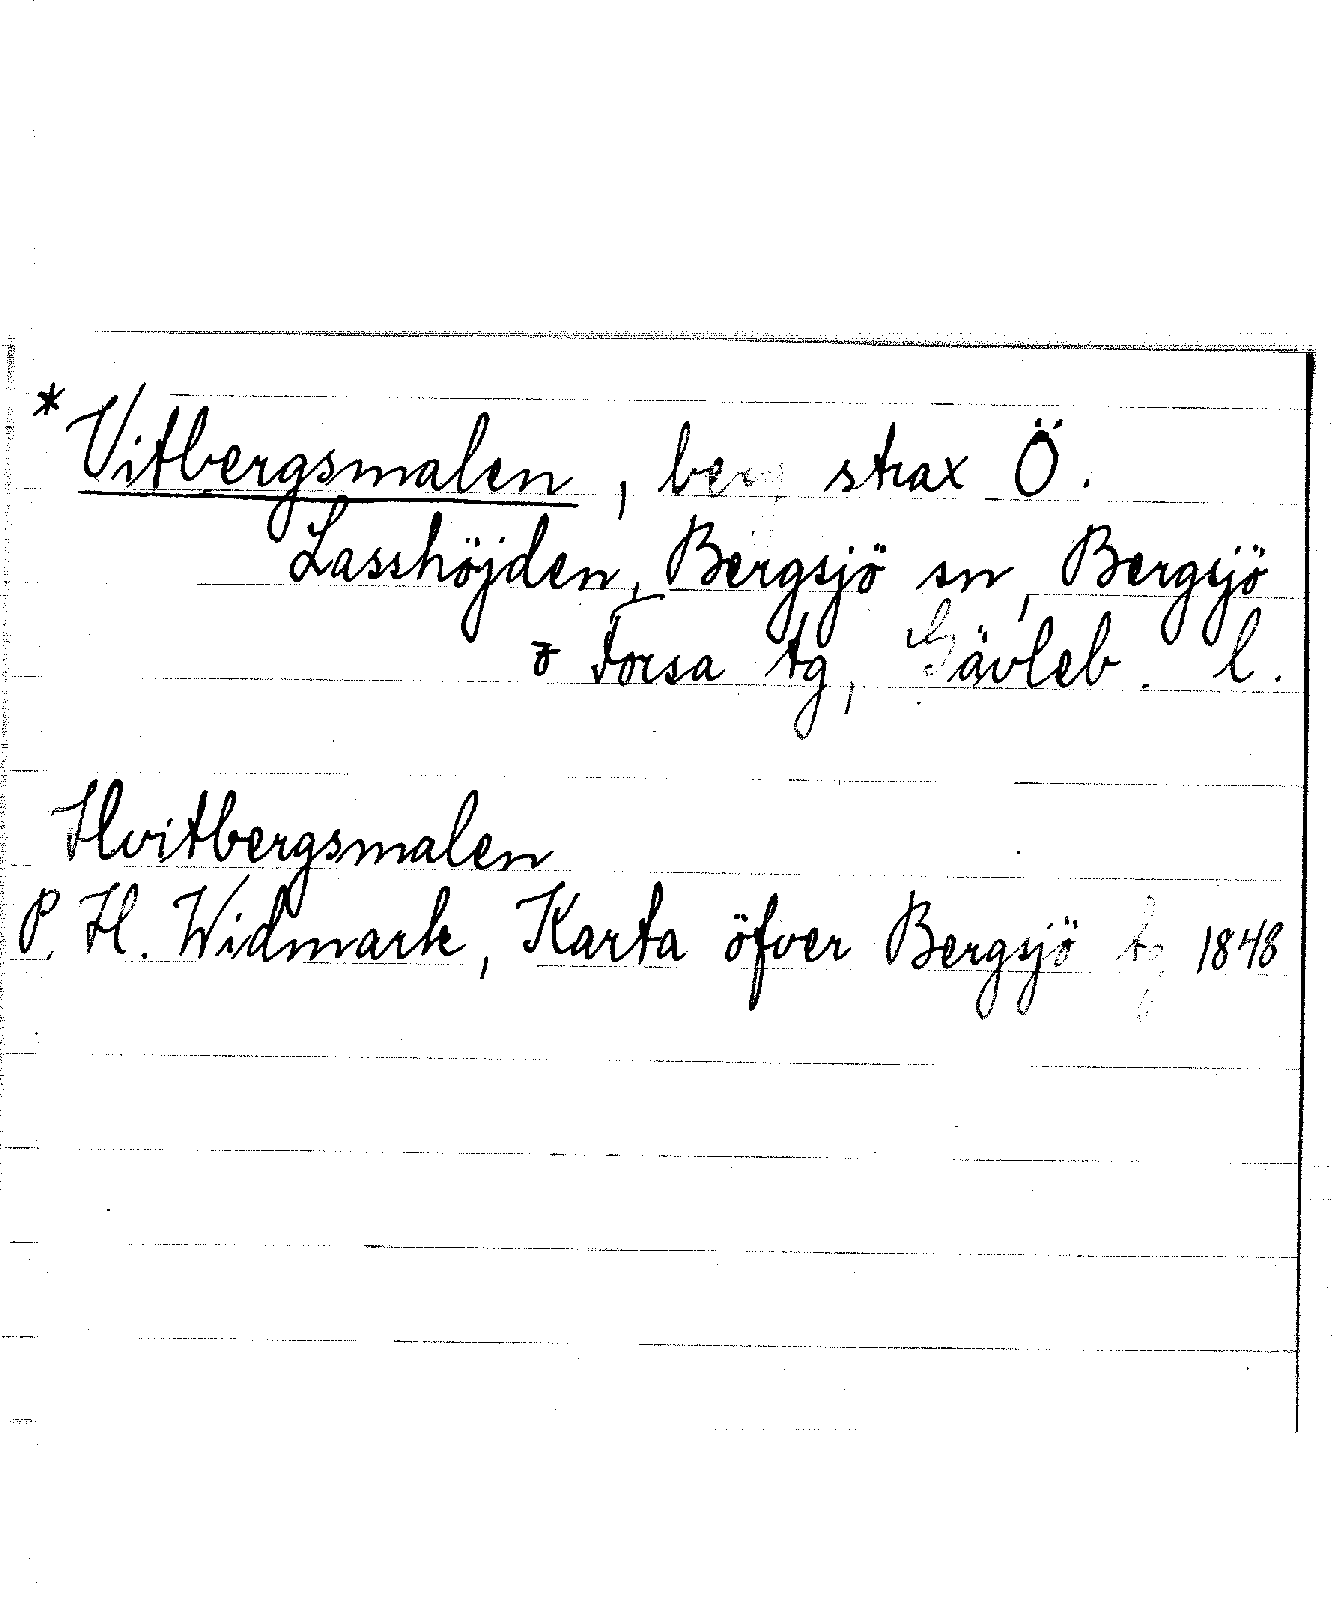 *Vitbergsmalen, berg strax Ö.
Lasshöjden, Bergsjö sn, Bergsjö
o Forsa tg, Gävleb. l.
Hvitbergsmalen
P. H. Widmark, Karta öfver Bergsjö tg 1848